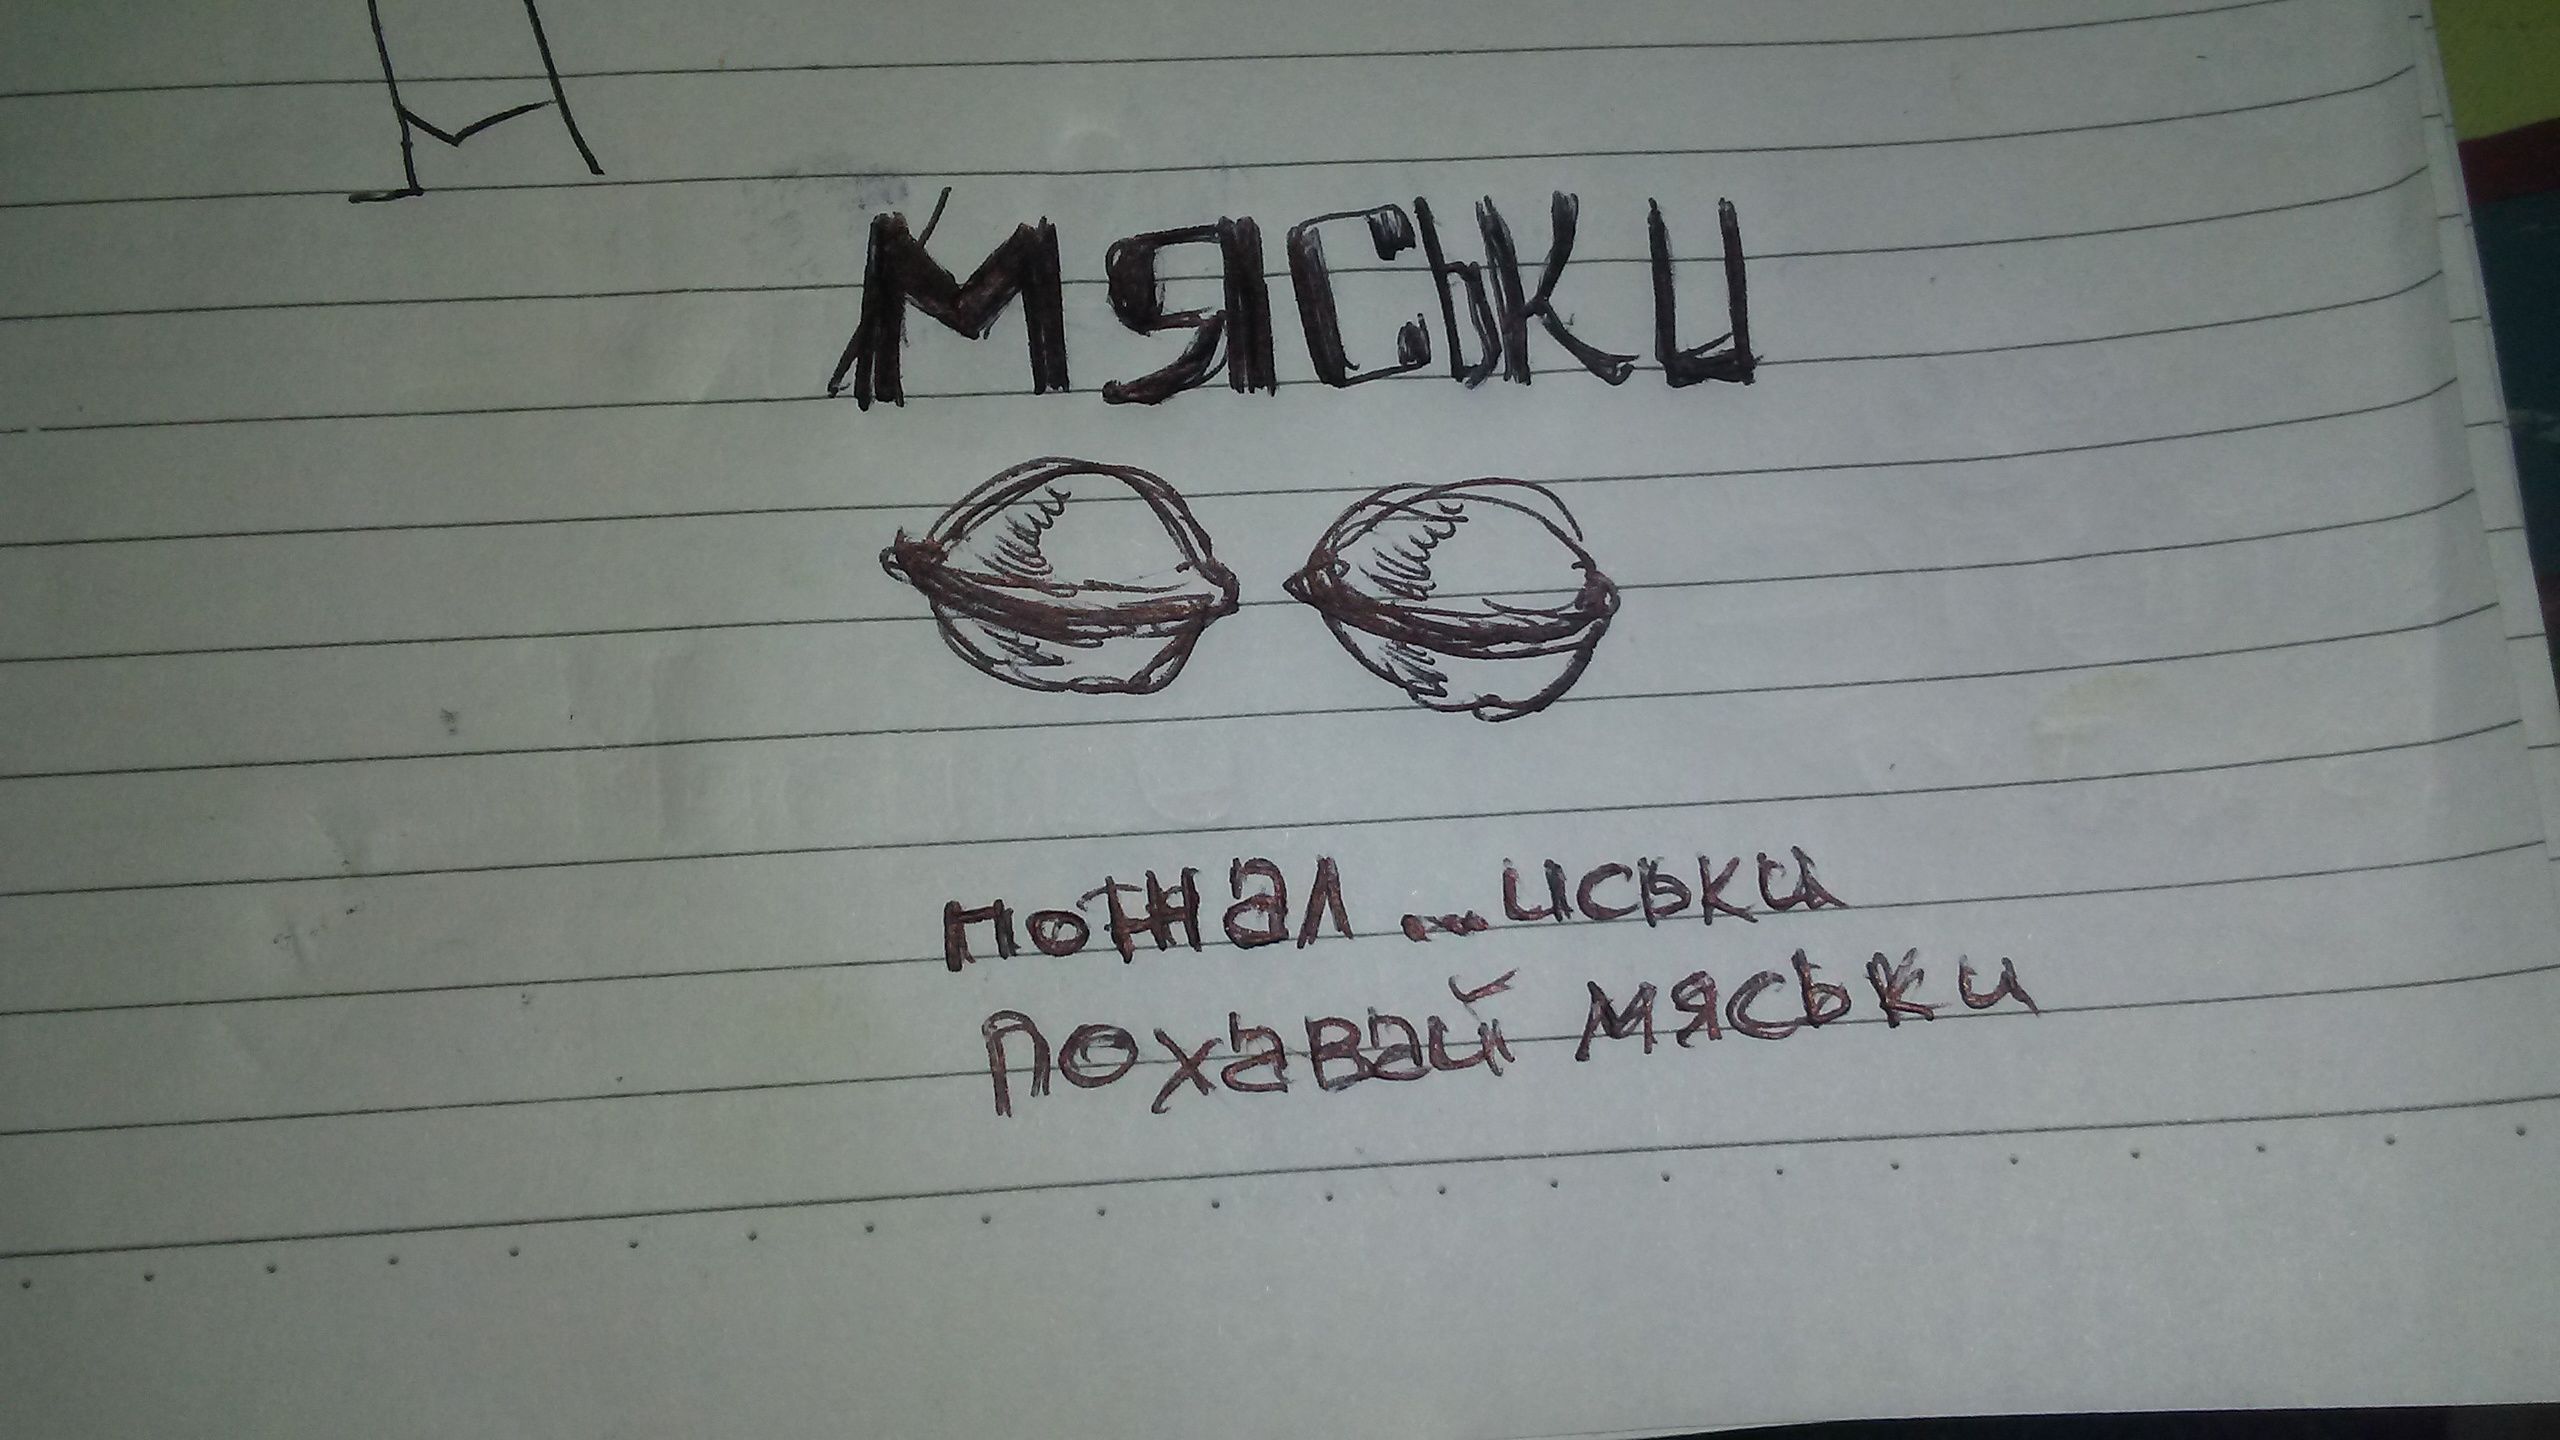 МЯСЬКИ
пожал ...иськи
похавай мяськи